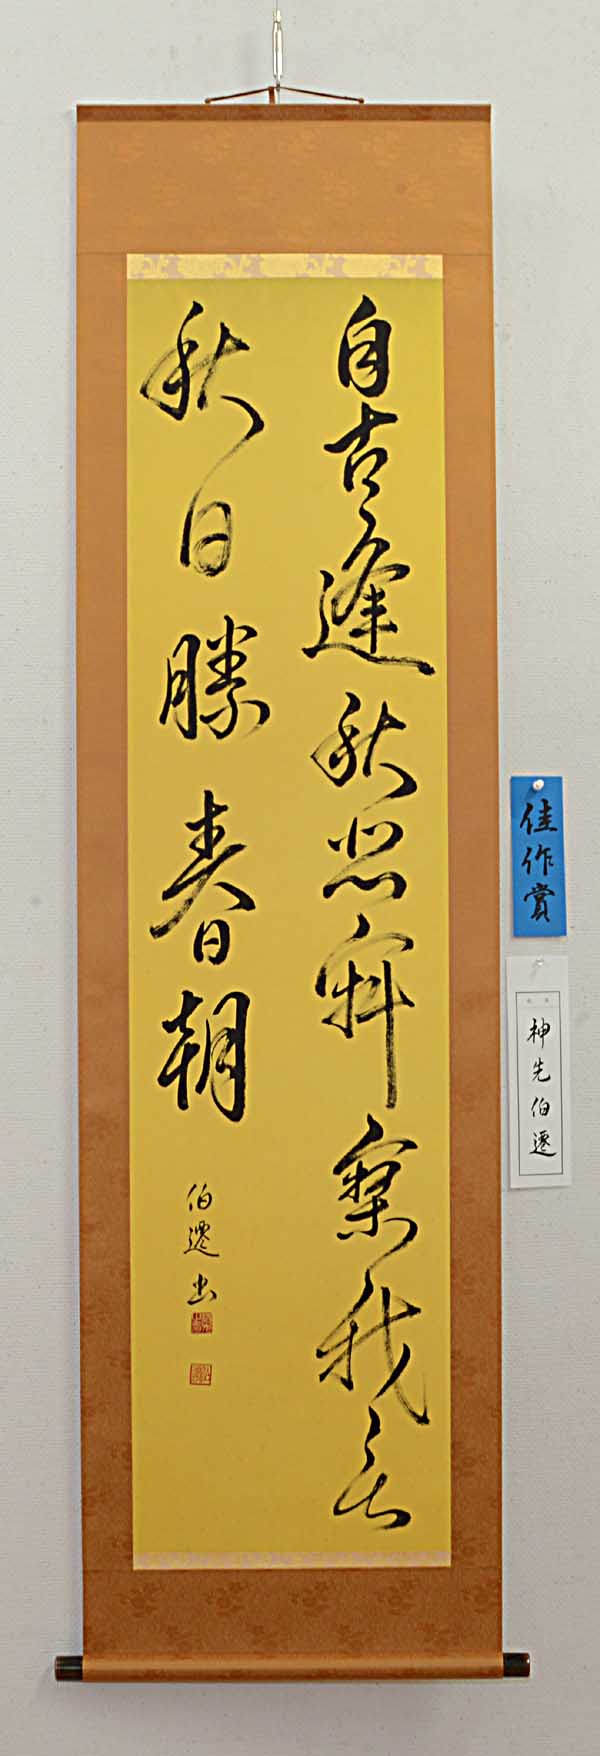 自古逢秋悲寂寥我言
秋日勝春朝
伯遷書
佳作賞
神先伯遷